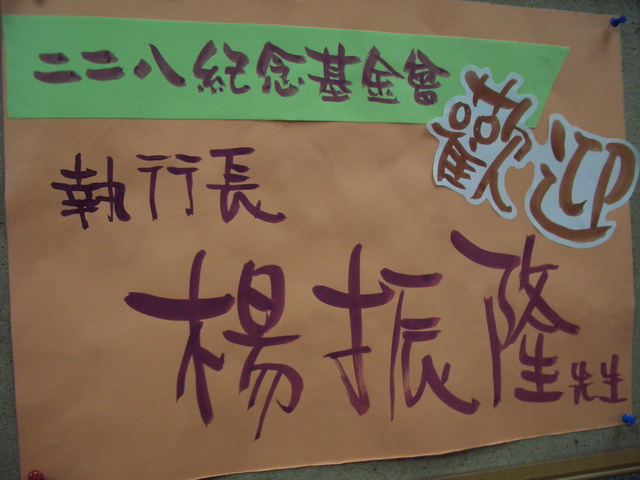 二二八紀念基金會
歡迎
執行長
楊振隆先生